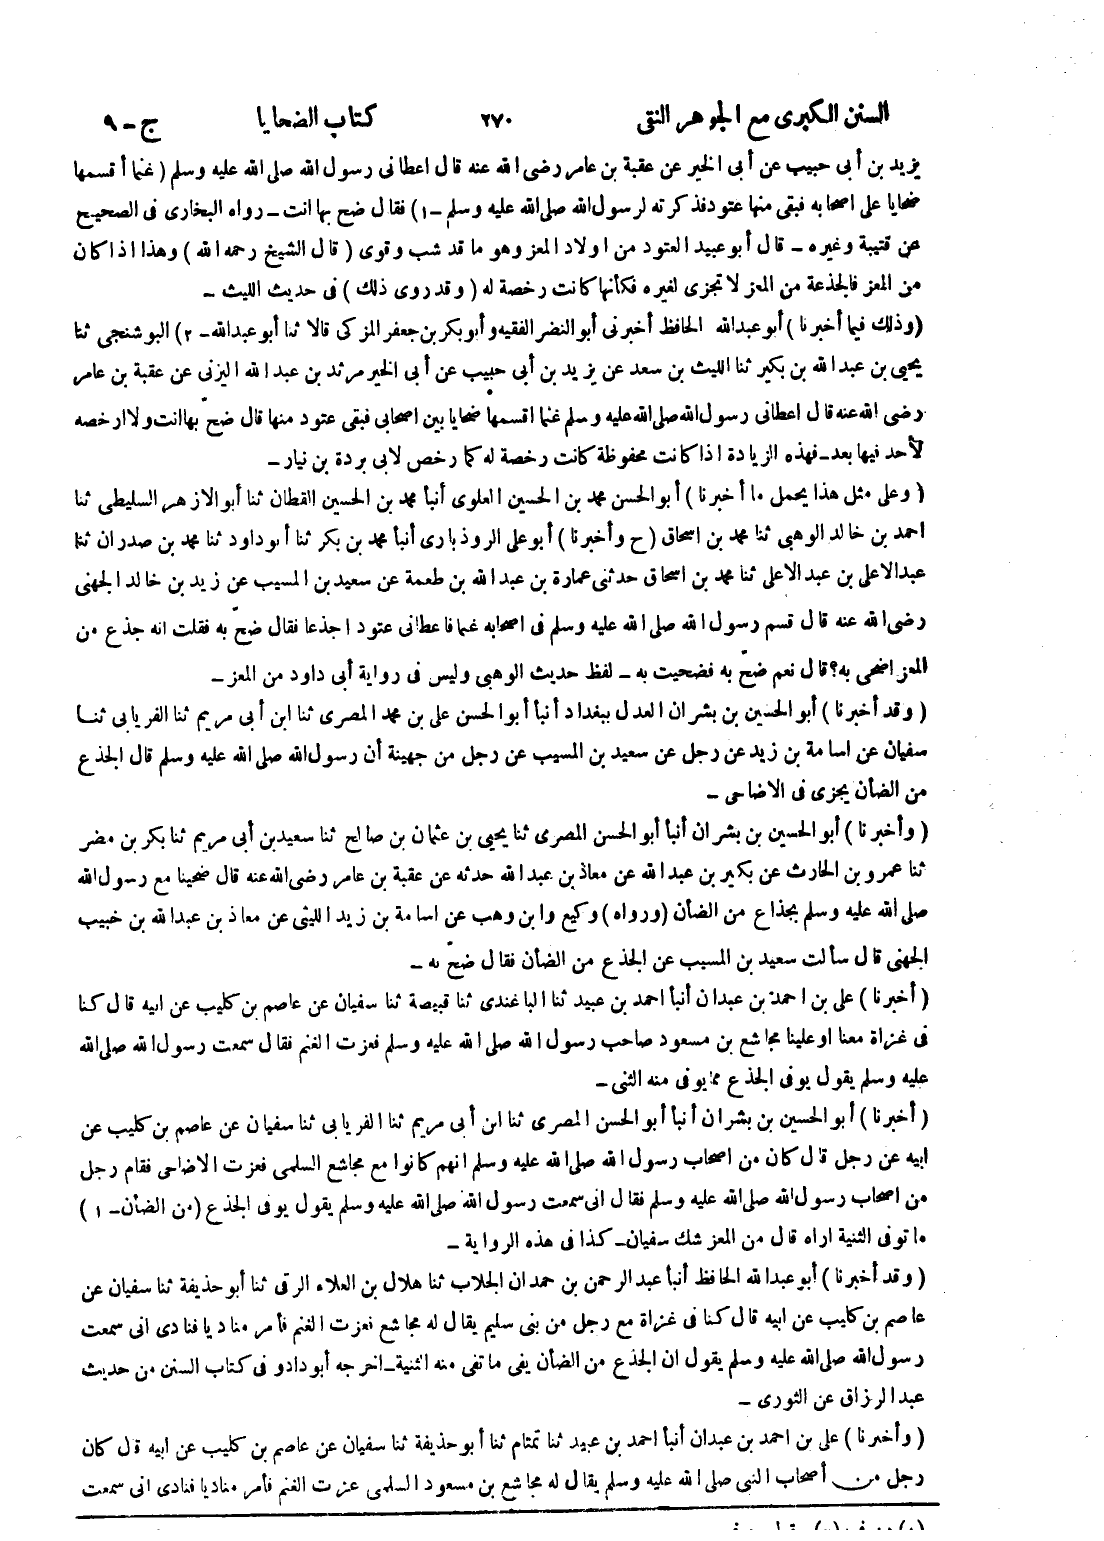 السنن الكبرى مع الجوهر النقى ٢٧٠ كتاب الضحايا ج - ٩
يزيد بن أبى حبيب عن أبى الخير عن عقبة بن عامر رضى الله عنه قال اعطانى رسول الله صلى الله عليه وسلم ( غنما أقسمها
ضحايا على اصحابه فبقى منها عتود فذكرته لرسول الله صلى الله عليه وسلم - ١) فقال ضح بها انت - رواه البخارى فى الصحيح
عن قتيبة وغيره - قال أبو عبيد العتود من اولاد المعز وهو ما قد شب وقوى ( قال الشيخ رحمه الله ) وهذا اذا كان
من المعز فالجذعة من المعز لا تجزى لغيره فكأنها كانت رخصة له ( وقد روى ذلك ) فى حديث الليث -
(وذلك فيما أخبرنا ) أبو عبدالله الحافظ أخبرنى أبو النضر الفقيه وأبو بكر بن جعفر المزكى قالا ثنا أبو عبدالله - ٢) البوشنجى ثنا
يحيى بن عبد الله بن بكير ثنا الليث بن سعد عن يزيد بن أبى حبيب عن أبى الخير مرثد بن عبد الله اليزنى عن عقبة بن عامر
رضى الله عنه قال اعطانى رسول الله صلى الله عليه وسلم غنما اقسمها ضحايا بين اصحابى فبقى عتود منها قال ضحّ بها انت ولا ارخصه
لأحد فيها بعد - فهذه الزيادة اذا كانت محفوظة كانت رخصة له كما رخص لابى بردة بن نيار -
( وعلى مثل هذا يحمل ما أخبرنا ) أبو الحسن محمد بن الحسين العلوى أنبأ محمد بن الحسين القطان ثنا أبو الازهر السليطى ثنا
احمد بن خالد الوهبى ثنا محمد بن اسحاق ( ح وأخبرنا ) أبو على الروذبارى أنبأ محمد بن بكر ثنا أبو داود ثنا محمد بن صدران ثنا
عبدالاعلى بن عبد الاعلى ثنا محمد بن اسحاق حدثنى عمارة بن عبد الله بن طعمة عن سعيد بن المسيب عن زيد بن خالد الجهنى
رضى الله عنه قال قسم رسول الله صلى الله عليه وسلم فى اصحابه غنما فاعطانى عتودا جذعا فقال ضحّ به فقلت انه جذع من
المعز اضحى به؟ قال نعم ضحّ به فضحيت به - لفظ حديث الوهبى وليس فى رواية أبى داود من المعز -
( وقد أخبرنا ) أبو الحسين بن بشران العدل ببغداد أنبأ أبو الحسن على بن محمد المصرى ثنا ابن أبى مريم ثنا الفريابى ثنا
سفيان عن اسامة بن زيد عن رجل عن سعيد بن المسيب عن رجل من جهينة أن رسول الله صلى الله عليه وسلم قال الجذع
من الضأن يجزى فى الاضاحى -
( وأخبرنا ) أبو الحسين بن بشران أنبأ أبو الحسن المصرى ثنا يحيى بن عثمان بن صالح ثنا سعيد بن أبى مريم ثنا بكر بن مضر
ثنا عمرو بن الحارث عن بكير بن عبد الله عن معاذ بن عبد الله حدثه عن عقبة بن عامر رضى الله عنه قال ضحينا مع رسول الله
صلى الله عليه وسلم بجذاع من الضأن (ورواه ) وكيع وابن وهب عن اسامة بن زيد الليثى عن معاذ بن عبدالله بن خبيب
الجهنى قال سألت سعيد بن المسيب عن الجذع من الضأن فقال ضحّ به -
( أخبرنا ) على بن احمد بن عبدان أنبأ احمد بن عبيد ثنا الباغندى ثنا قبيصة ثنا سفيان عن عاصم بن كليب عن ابيه قال كنا
فى غزاة معنا او علينا مجاشع بن مسعود صاحب رسول الله صلى الله عليه وسلم فعزت الغنم فقال سمعت رسول الله صلى الله
عليه وسلم يقول يوفى الجذع مما يوفى منه الثنى -
( أخبرنا ) أبو الحسين بن بشران أنبأ أبو الحسن المصرى ثنا ابن أبى مريم ثنا الفريابى ثنا سفيان عن عاصم بن كليب عن
ابيه عن رجل قال كان من اصحاب رسول الله صلى الله عليه وسلم انهم كانوا مع مجاشع السلمى فعزت الاضاحى فقام رجل
من اصحاب رسول الله صلى الله عليه وسلم فقال انى سمعت رسول الله صلى الله عليه وسلم يقول يوفى الجذع (من الضأن - ١ )
ما توفى الثنية اراه قال من المعز شك سفيان - كذا فى هذه الرواية -
( وقد أخبرنا ) أبو عبدالله الحافظ أنبأ عبد الرحمن بن حمدان الجلاب ثنا هلال بن العلاء الرقى ثنا أبو حذيفة ثنا سفيان عن
عاصم بن كليب عن ابيه قال كنا فى غزاة مع رجل من بنى سليم يقال له مجاشع فعزت الغنم فأمر مناديا فنادى انى سمعت
رسول الله صلى الله عليه وسلم يقول ان الجذع من الضأن يفى ما تفى منه الثنية - اخرجه أبو دادو فى كتاب السنن من حديث
عبد الرزاق عن الثورى -
( وأخبرنا ) على بن احمد بن عبدان أنبأ احمد بن عبيد ثنا تمتام ثنا أبو حذيفة ثنا سفيان عن عاصم بن كليب عن ابيه قال كان
رجل من أصحاب النبى صلى الله عليه وسلم يقال له مجاشع بن مسعود السلمى عزت الغنم فأمر مناديا فنادى انى سمعت